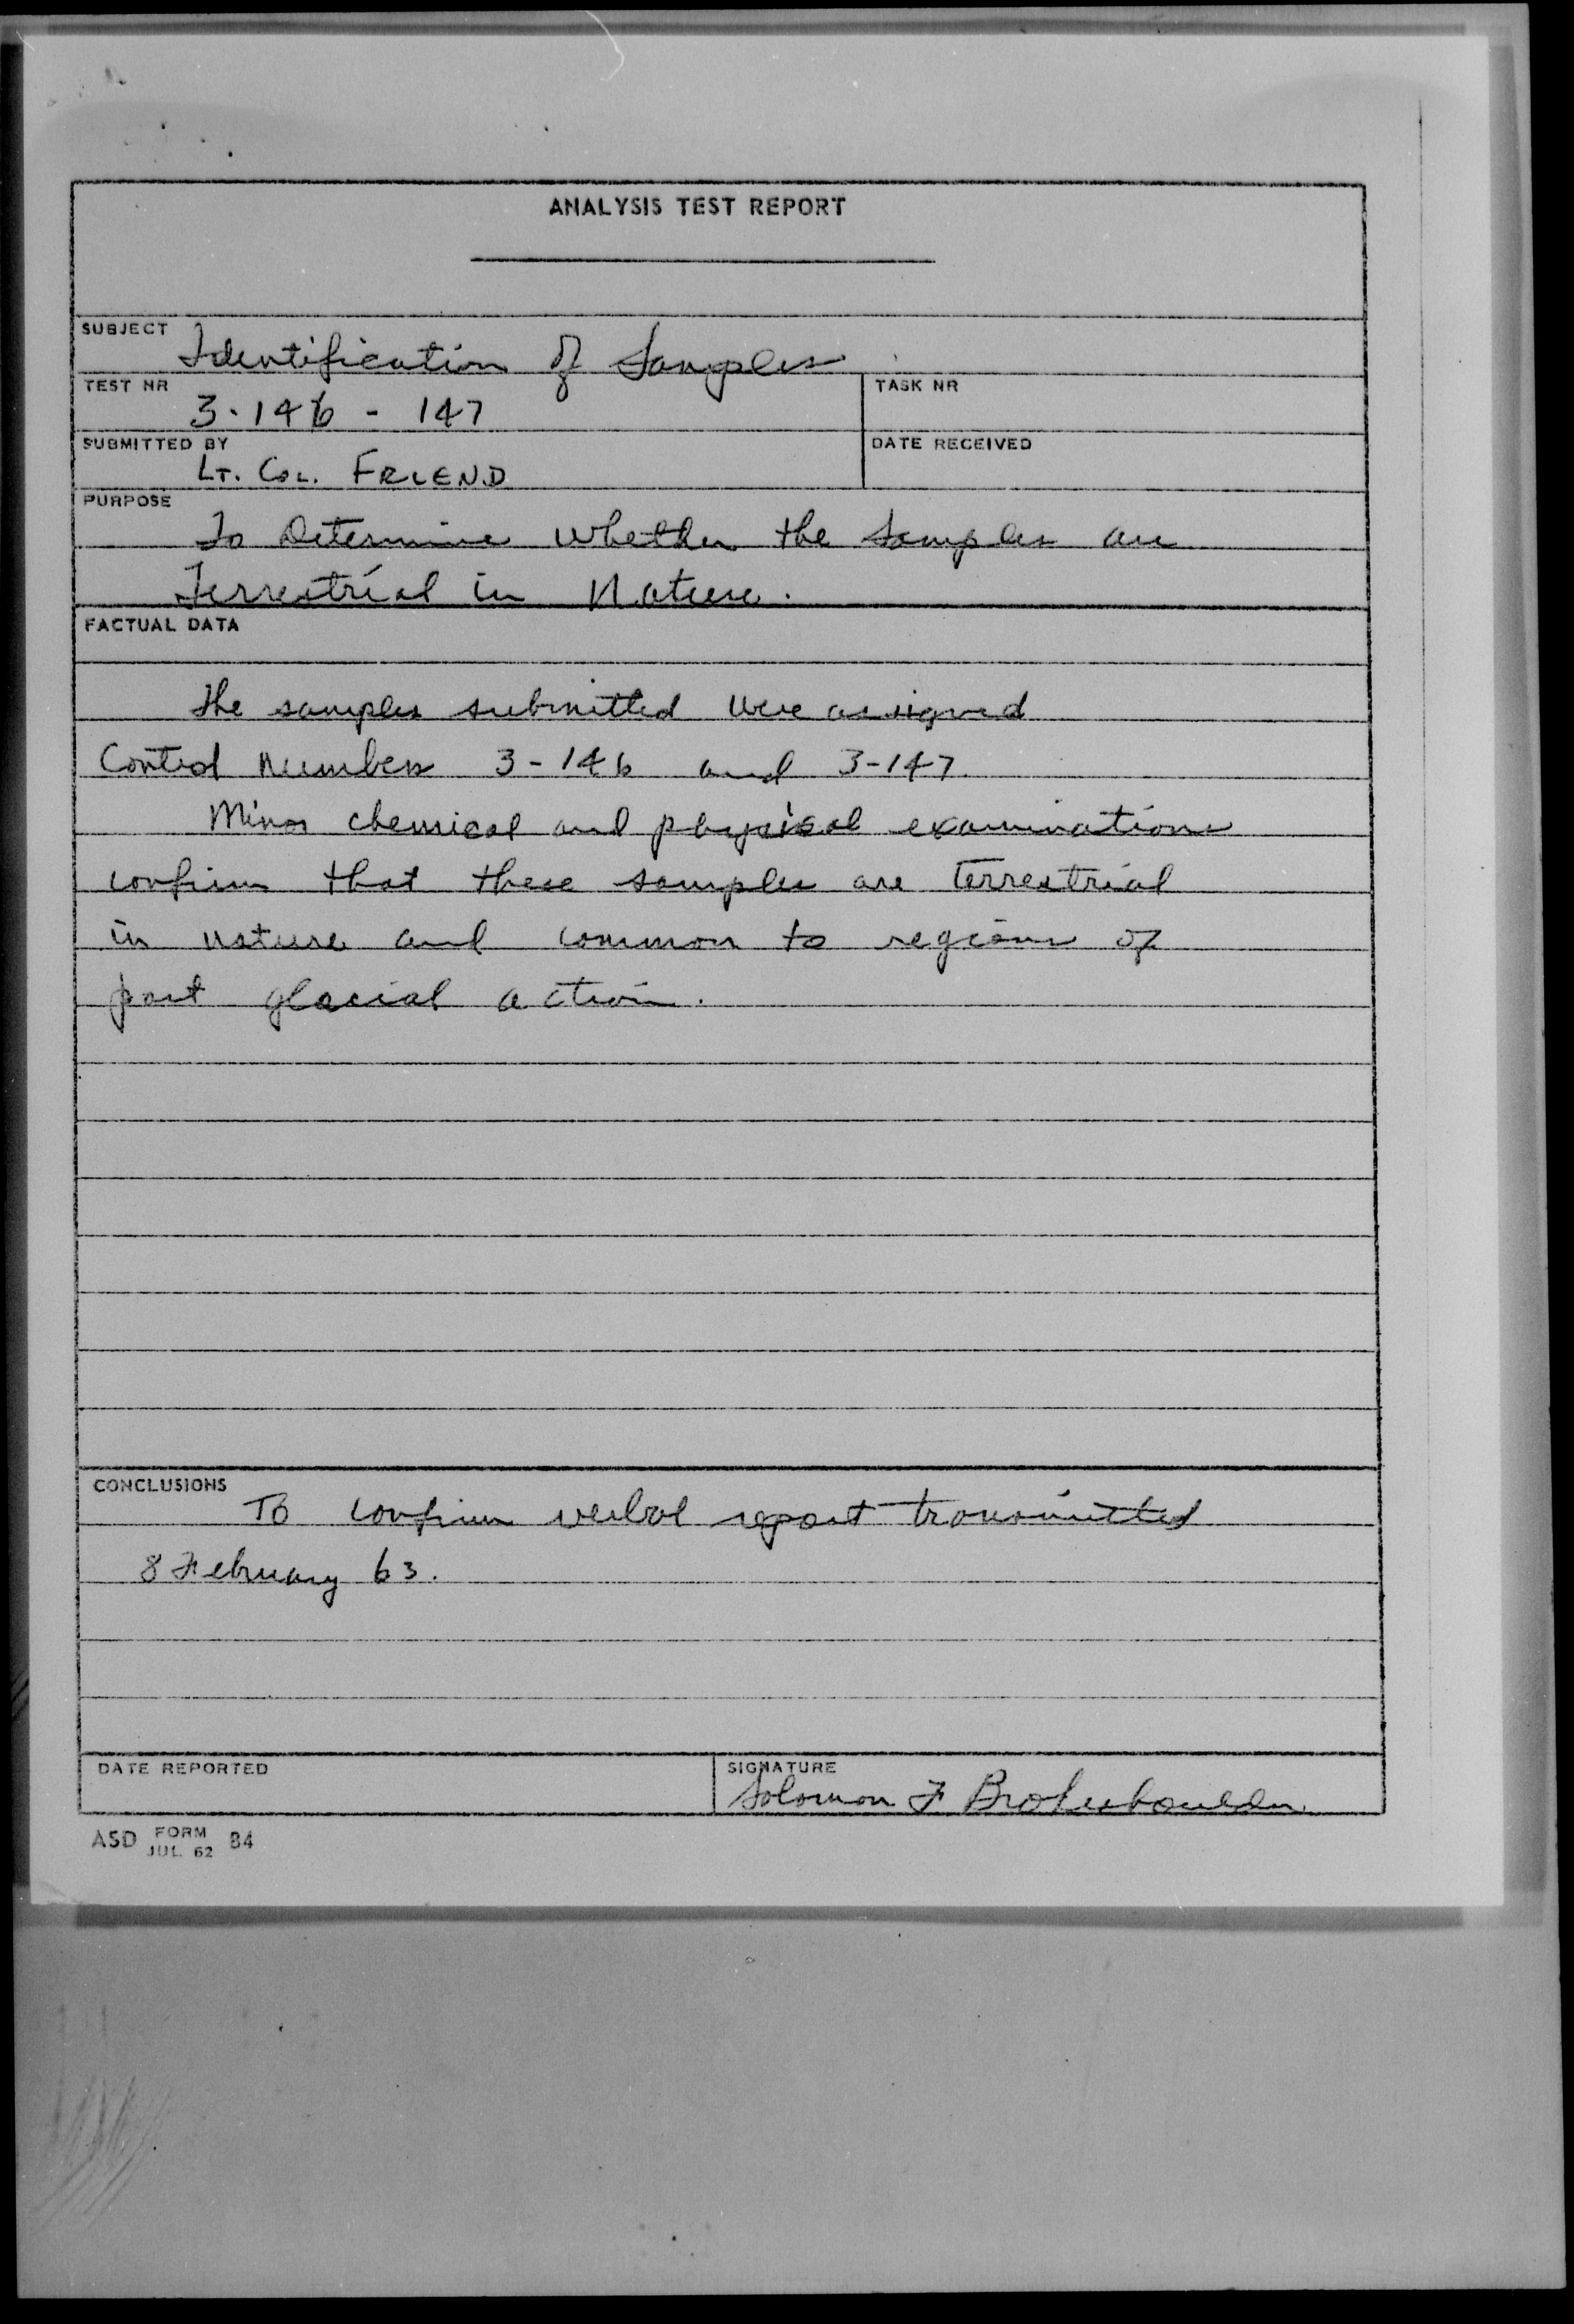 ANALYSIS TEST REPORT
SUBJECT
Identification of Samples
TEST NR
3-146 - 147
TASK NR
SUBMITTED BY
LT. COL. FRIEND
DATE RECEIVED
PURPOSE
To Determine whether the samples are
Terrestrial in Nature.
FACTUAL DATA
The samples submitted were assigned
Control Numbers 3-146 and 3-147.
Minor chemical and physical examinations
confirm that these samples are terrestrial
in nature and common to regions of
past glacial action.
CONCLUSIONS
To confirm verbal report transmitted
8 February 63.
DATE REPORTED
SIGNATURE
Solomon F
ASD FORM JUL 62 84